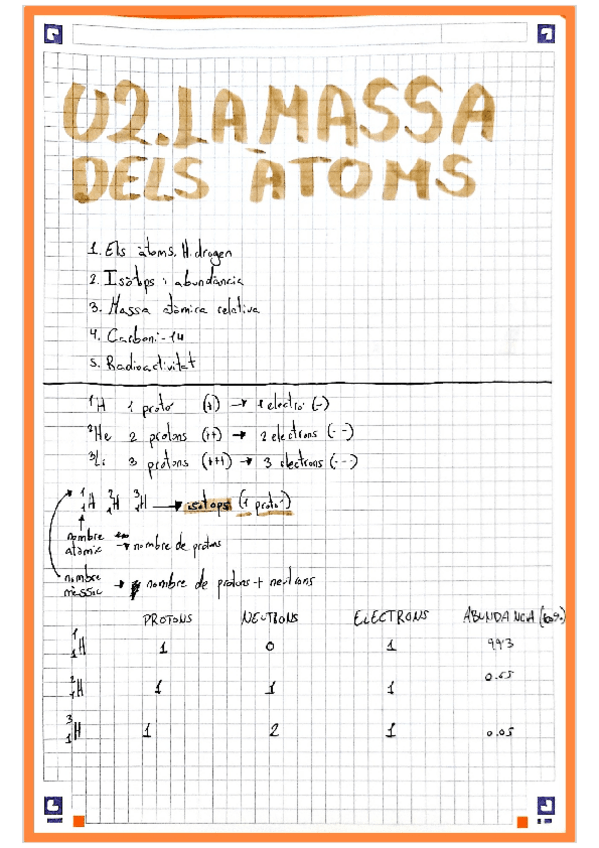 U2. LA MASSA
DELS ÀTOMS
1. Els àtoms. Hidrogen
2. Isòtops i abundància
3. Massa atòmica relativa
4. Carboni-14
5. Radioactivitat
¹H 1 protó (+) → 1 electró (-)
²He 2 protons (++) → 2 electrons (--)
³Li 3 protons (+++) → 3 electrons (---)
¹₁H ²₁H ³₁H → isòtops (1 protó)
nombre
atòmic → nombre de protons
nombre
màssic → nombre de protons + neutrons
PROTONS NEUTRONS ELECTRONS ABUNDANCIA
¹₁H 1 0 1 99.3
²₁H 1 1 1 0.65
³₁H 1 2 1 0.05